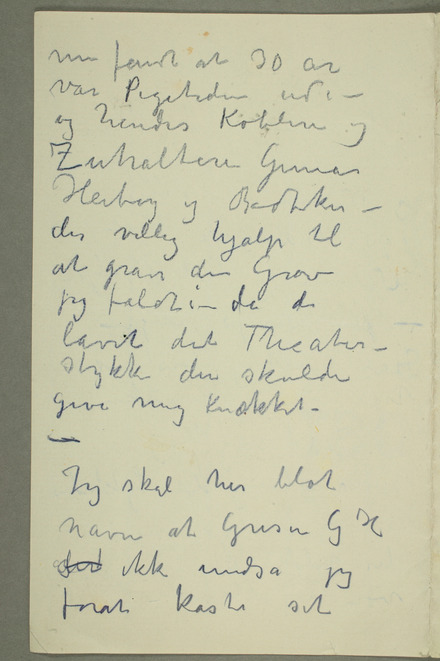 nu fandt at 30 ar
var Pigetiden ude –
og hendes Koblere og
Zuhaltere Gunnar
Heiberg og Bødtker –
der villig hjalp til
at grave den Grav
jeg faldt i – da de
lavet det Theater-
stykke der skulde
give mig Knækket –
Jeg skal her blot
nævne at Grisen G H
ikke undsa jeg
forat kaste sit